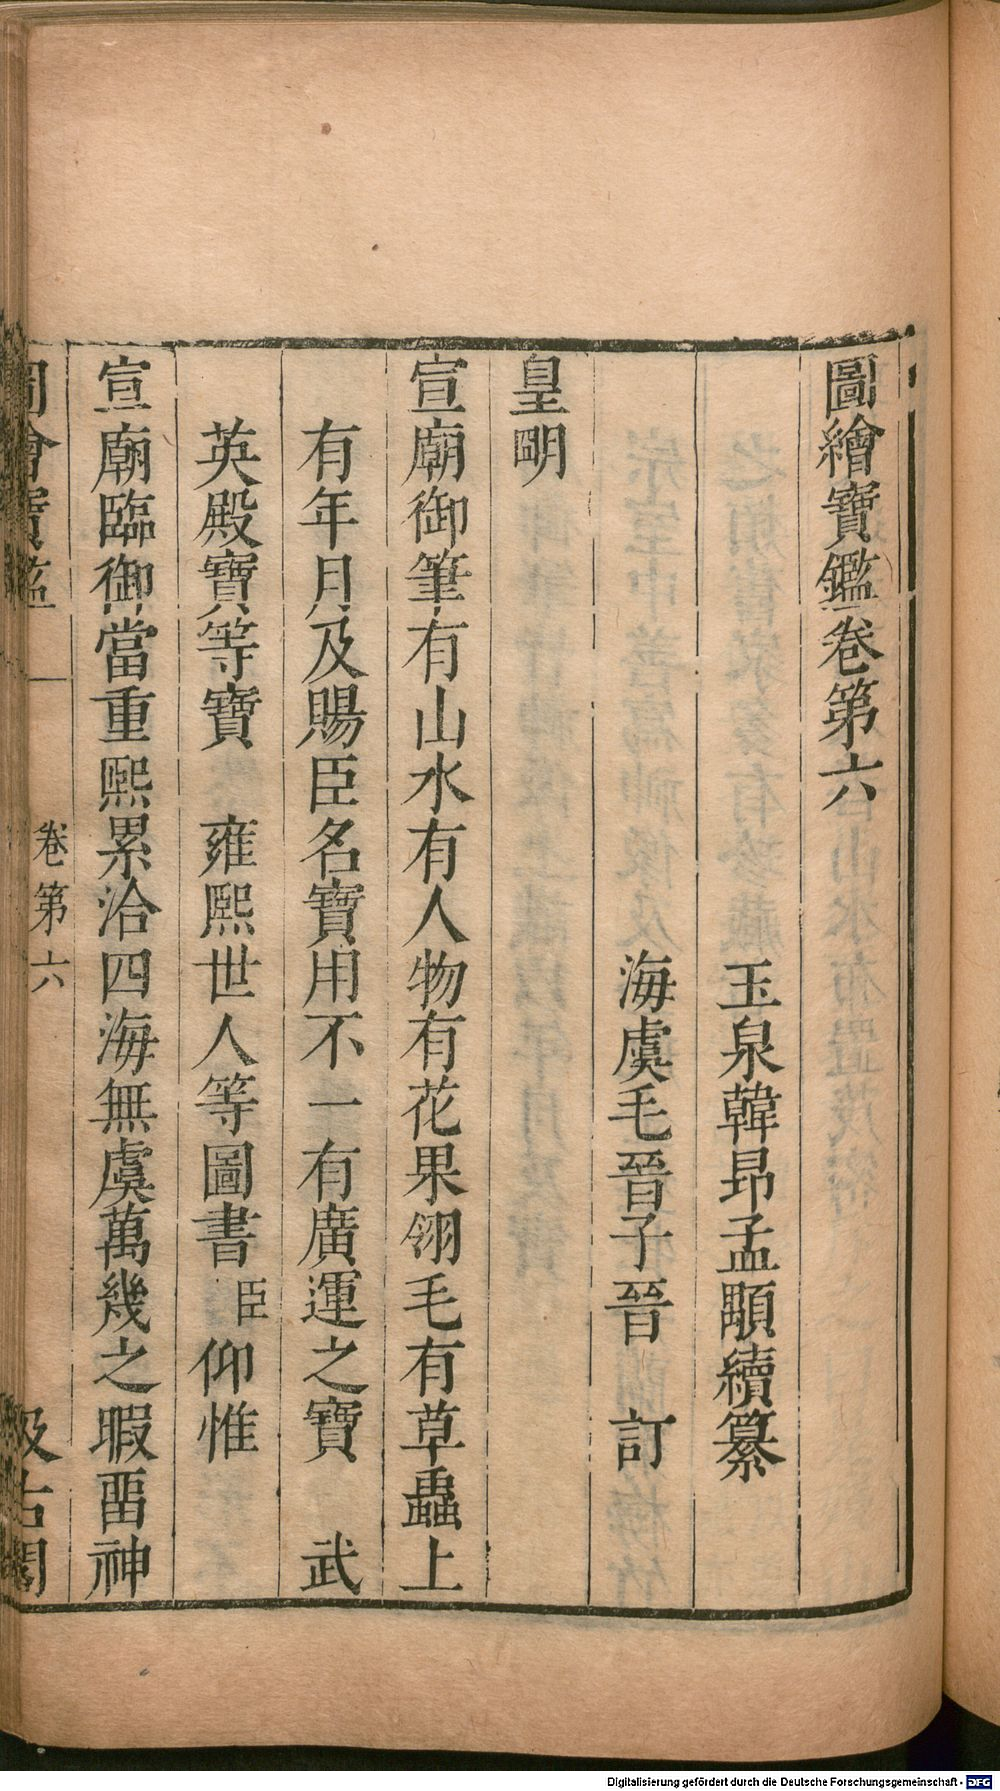 圖繪寶鑑卷第六
玉泉韓昂孟顒續纂
海虞毛晉子晉　訂
皇明
宣廟御筆有山水有人物有花果翎毛有草蟲上
有年月及賜臣名寶用不一有廣運之寶　武
英殿寶等寶　雍熙世人等圖書臣仰惟
宣廟臨御當重熙累洽四海無虞萬幾之暇畱神
圖繪寶鑑　卷第六　汲古閣
Digitalisierung gefördert durch die Deutsche Forschungsgemeinschaft - DFG